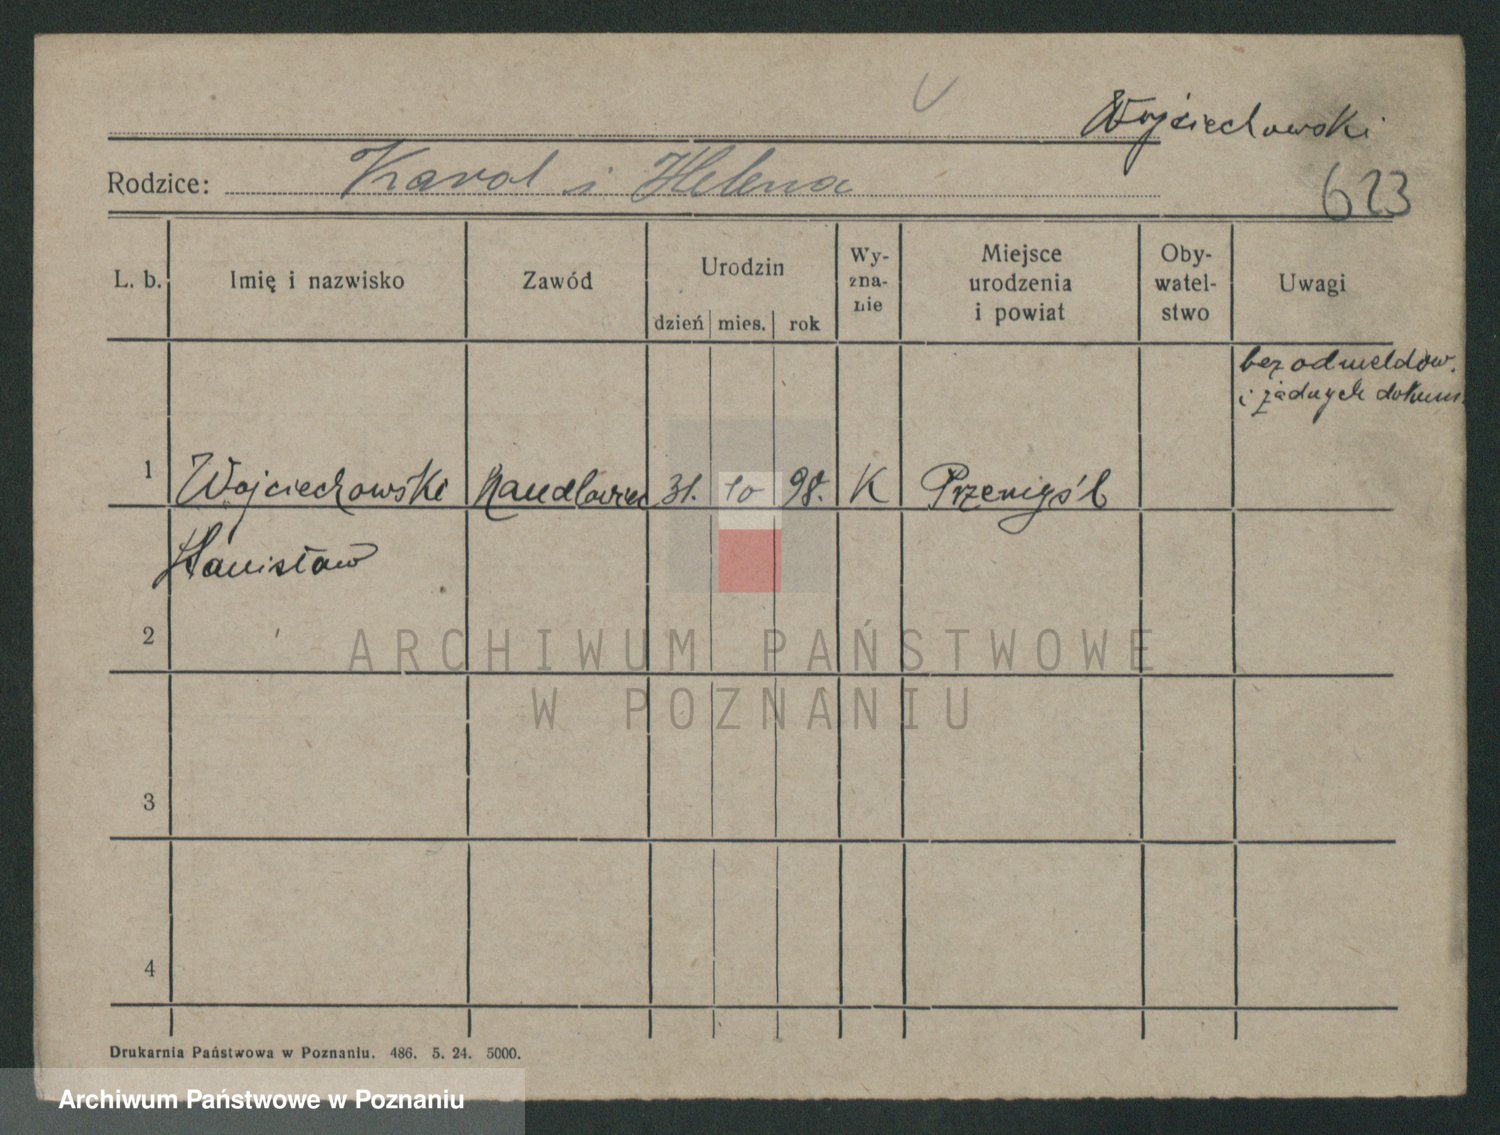 Wojciechowski
Rodzice: Karol i Helena
623
L. b. Imię i nazwisko Zawód Urodzin Wy-zna-nie Miejsce urodzenia i powiat Oby-watel-stwo Uwagi
dzień mies. rok
bez odmeldow.
i żadnych dokum.
1 Wojciechowski handlowiec 31. 10 98. K Przemyśl
Stanisław
2
ARCHIWUM PAŃSTWOWE
W POZNANIU
3
4
Drukarnia Państwowa w Poznaniu. 486. 5. 24. 5000.
Archiwum Państwowe w Poznaniu